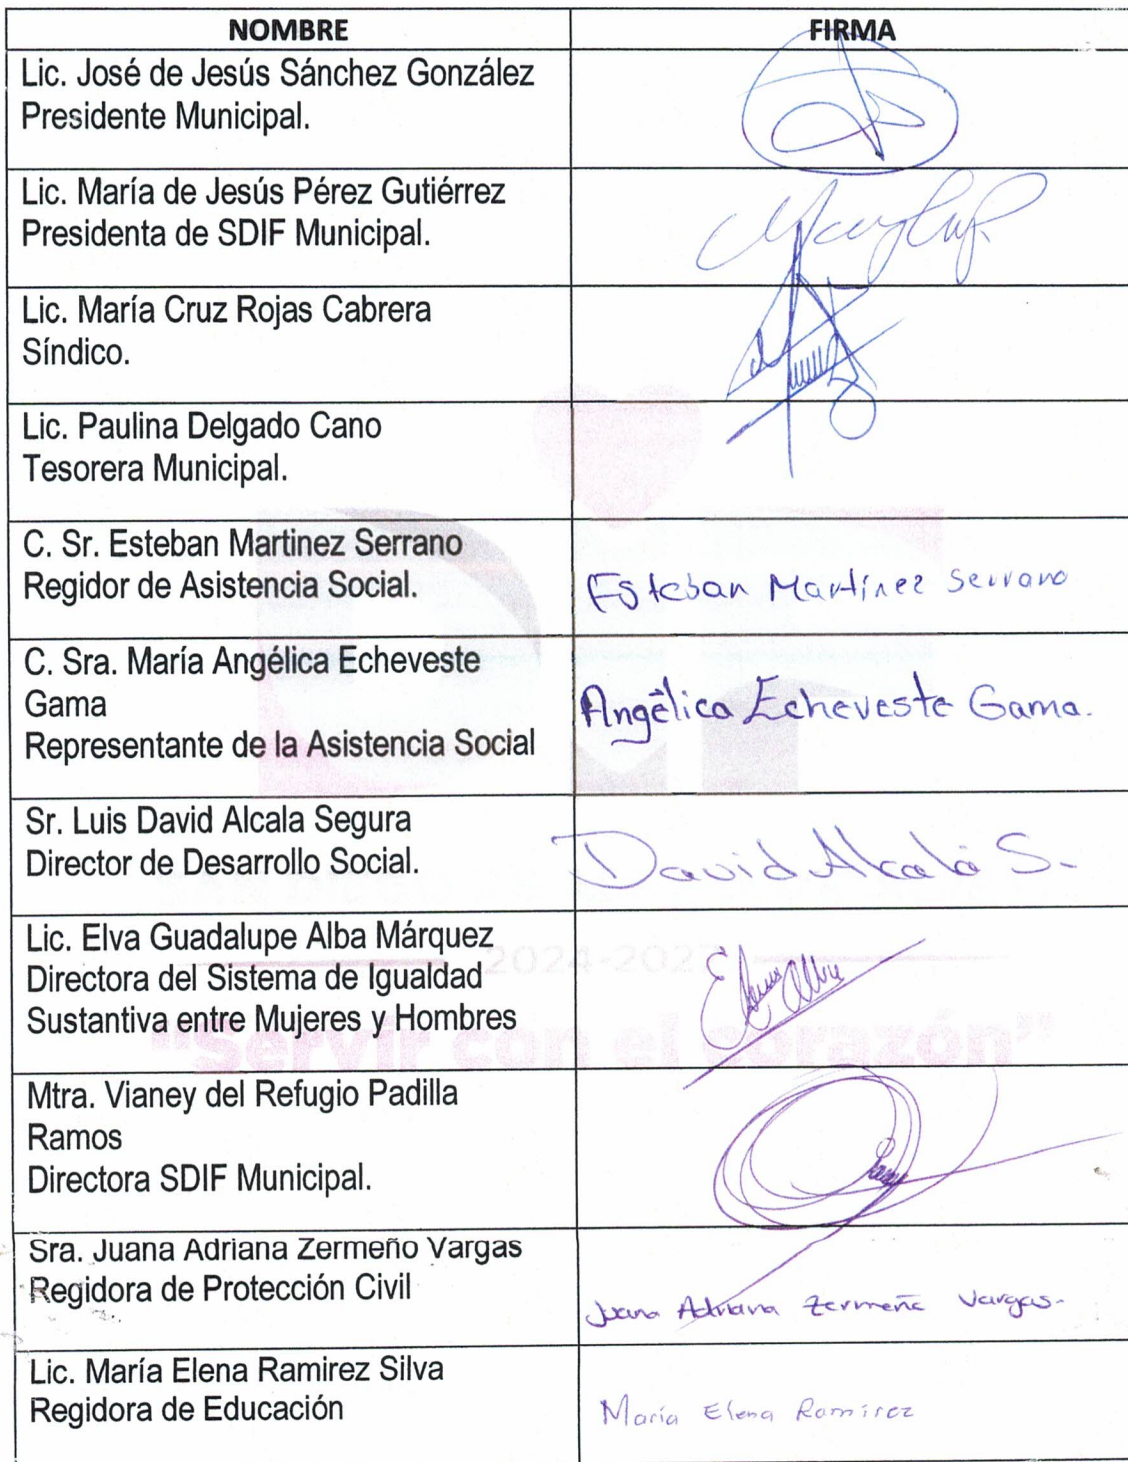 NOMBRE FIRMA
Lic. José de Jesús Sánchez González
Presidente Municipal.
Lic. María de Jesús Pérez Gutiérrez
Presidenta de SDIF Municipal.
Lic. María Cruz Rojas Cabrera
Síndico.
Lic. Paulina Delgado Cano
Tesorera Municipal.
C. Sr. Esteban Martinez Serrano
Regidor de Asistencia Social.
Esteban Martínez Serrano
C. Sra. María Angélica Echeveste
Gama
Representante de la Asistencia Social
Angélica Echeveste Gama.
Sr. Luis David Alcala Segura
Director de Desarrollo Social.
David Alcalá S.
Lic. Elva Guadalupe Alba Márquez
Directora del Sistema de Igualdad
Sustantiva entre Mujeres y Hombres
2024-2027
"Servir con el corazón"
Mtra. Vianey del Refugio Padilla
Ramos
Directora SDIF Municipal.
Sra. Juana Adriana Zermeño Vargas
Regidora de Protección Civil
Juana Adriana Zermeño Vargas.
Lic. María Elena Ramirez Silva
Regidora de Educación
María Elena Ramírez